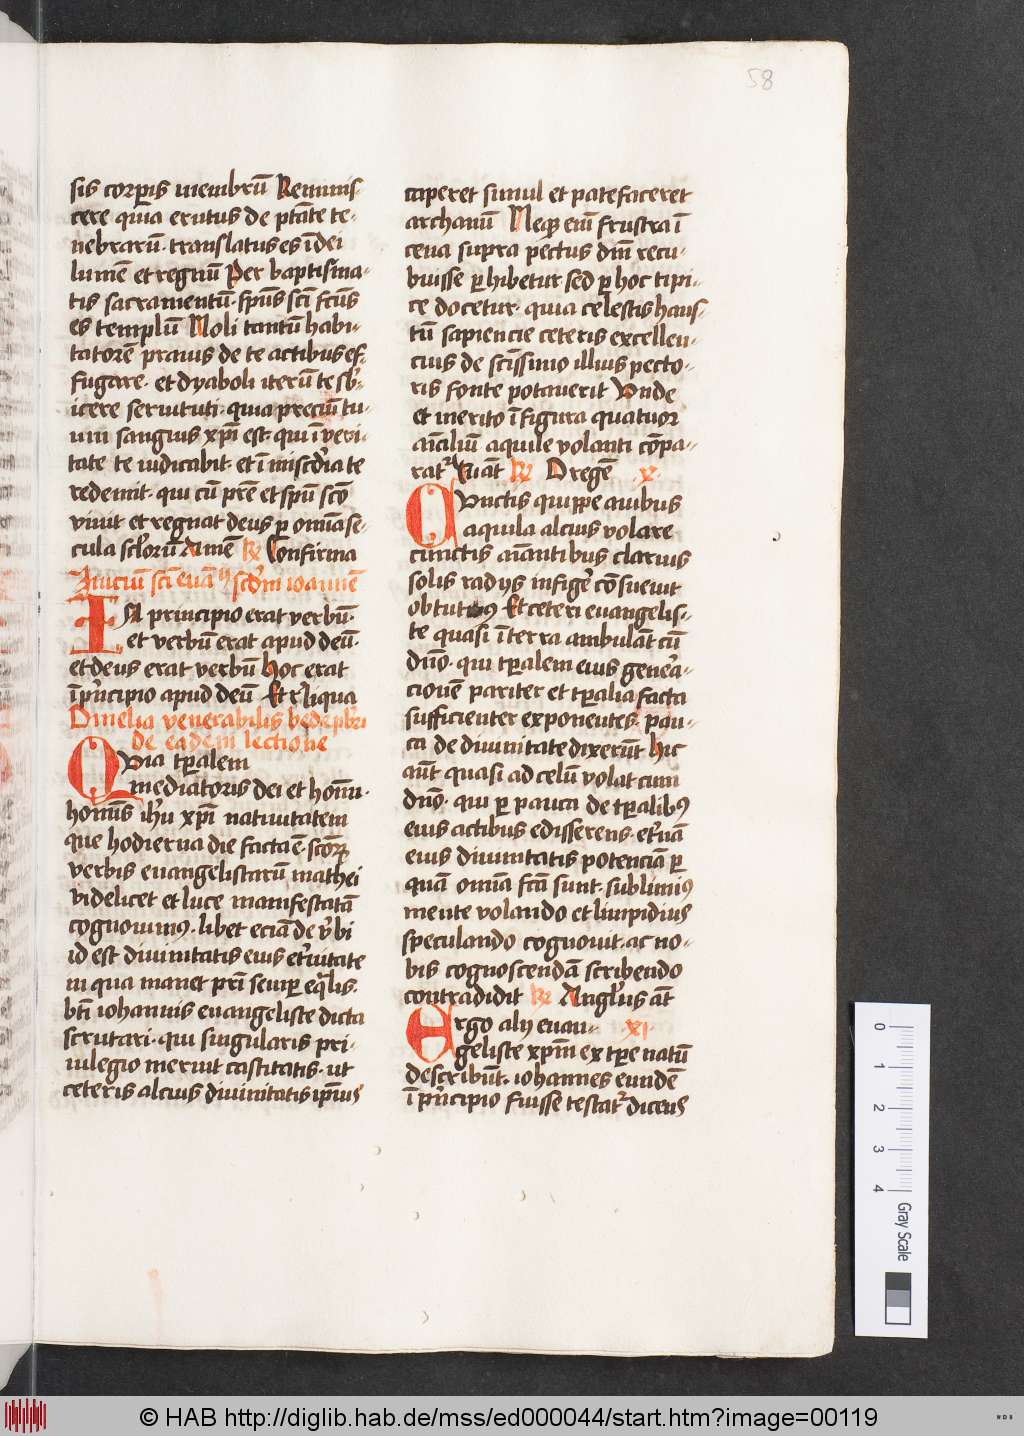 58
sis corꝑis membrū Reminis-
cere quia erutus de ptāte te-
nebrarū · translatus es ī dei
lumē et regnū Per baptisma-
tis sacramentū · spūs scī fcūs
es templū Noli tantū habi-
tatorē prauis de te actibus ef-
fugare · et dyaboli iterū te sb-
icere seruituti · quia preciū tu-
um sanguis xpī est · qui ī veri-
tate te iudicabit · et ī mīscdia te
redemit · qui cū prē et spū scō
viuit et regnat deus ꝑ omīa se-
cula sclorū Amē ℟ Confirma
Iniciū scī euāꝰ scdm ioannē
IN principio erat verbū ·
et verbū erat apud deū ·
et deus erat verbū Hoc erat
ī pncipio apud deū · Et reliqua
Omelia venerabilis bede pbri
de eadem lectione
QVia tꝑalem
mediatoris dei et homī-
homīs ihū xpī natiuitatem
que hodierna die facta ē · scōꝝ
verbis euangelistarū mathei
videlicet et luce manifestatā
cognouimꝰ · libet eciā de v̄bi
id est diuinitatis eius etn̄itate
in qua manet prī semꝑ eq̄lis ·
bti iohannis euangeliste dicta
scrutari · qui singularis pri-
uilegio meruit castitatis · ut
ceteris alcius diuinitatis ipīus
caperet simul et patefaceret
archanū Neqꝫ eni frustra ī
cena supra pectus dnī recu-
buisse ꝑhibetur · sed ꝑ hoc tipi-
ce docetur · quia celestis haus-
tū sapiencie ceteris excellen-
cius de scīssimo illius pecto-
ris fonte potauerit Vnde
et merito ī figura quatuor
aīaliū aquile volanti cōpa-
rat᷑ ℟ O regē x
CVnctis quippe auibus
aquila alcius volare
cunctis aīantibus clarius
solis radijs infigē cōsueuit
obtutꝰ Et ceteri euangelis-
te quasi ī terra ambulāt cū
dno · qui tꝑalem eius genera-
cionē pariter et tꝑalia facta
sufficienter exponentes · pau-
ca de diuinitate dixerūt Hic
aūt quasi ad celū volat cum
dno · qui ꝑ pauca de tꝑalibꝰ
eius actibus edisserens · et͛nā
eius diuinitatis potenciā ꝑ
quā omīa fcā sunt · sublimiꝰ
mente volando et limpidius
speculando cognouit · ac no-
bis cognoscendā scribendo
contradidit ℟ Anglus aūt
ERgo alij euan- xi
geliste xpm ex tꝑe natū
describūt · iohannes eundē
ī pncipio fuisse testat᷑ dicens
0 1 2 3 4
Gray Scale
© HAB http://diglib.hab.de/mss/ed000044/start.htm?image=00119